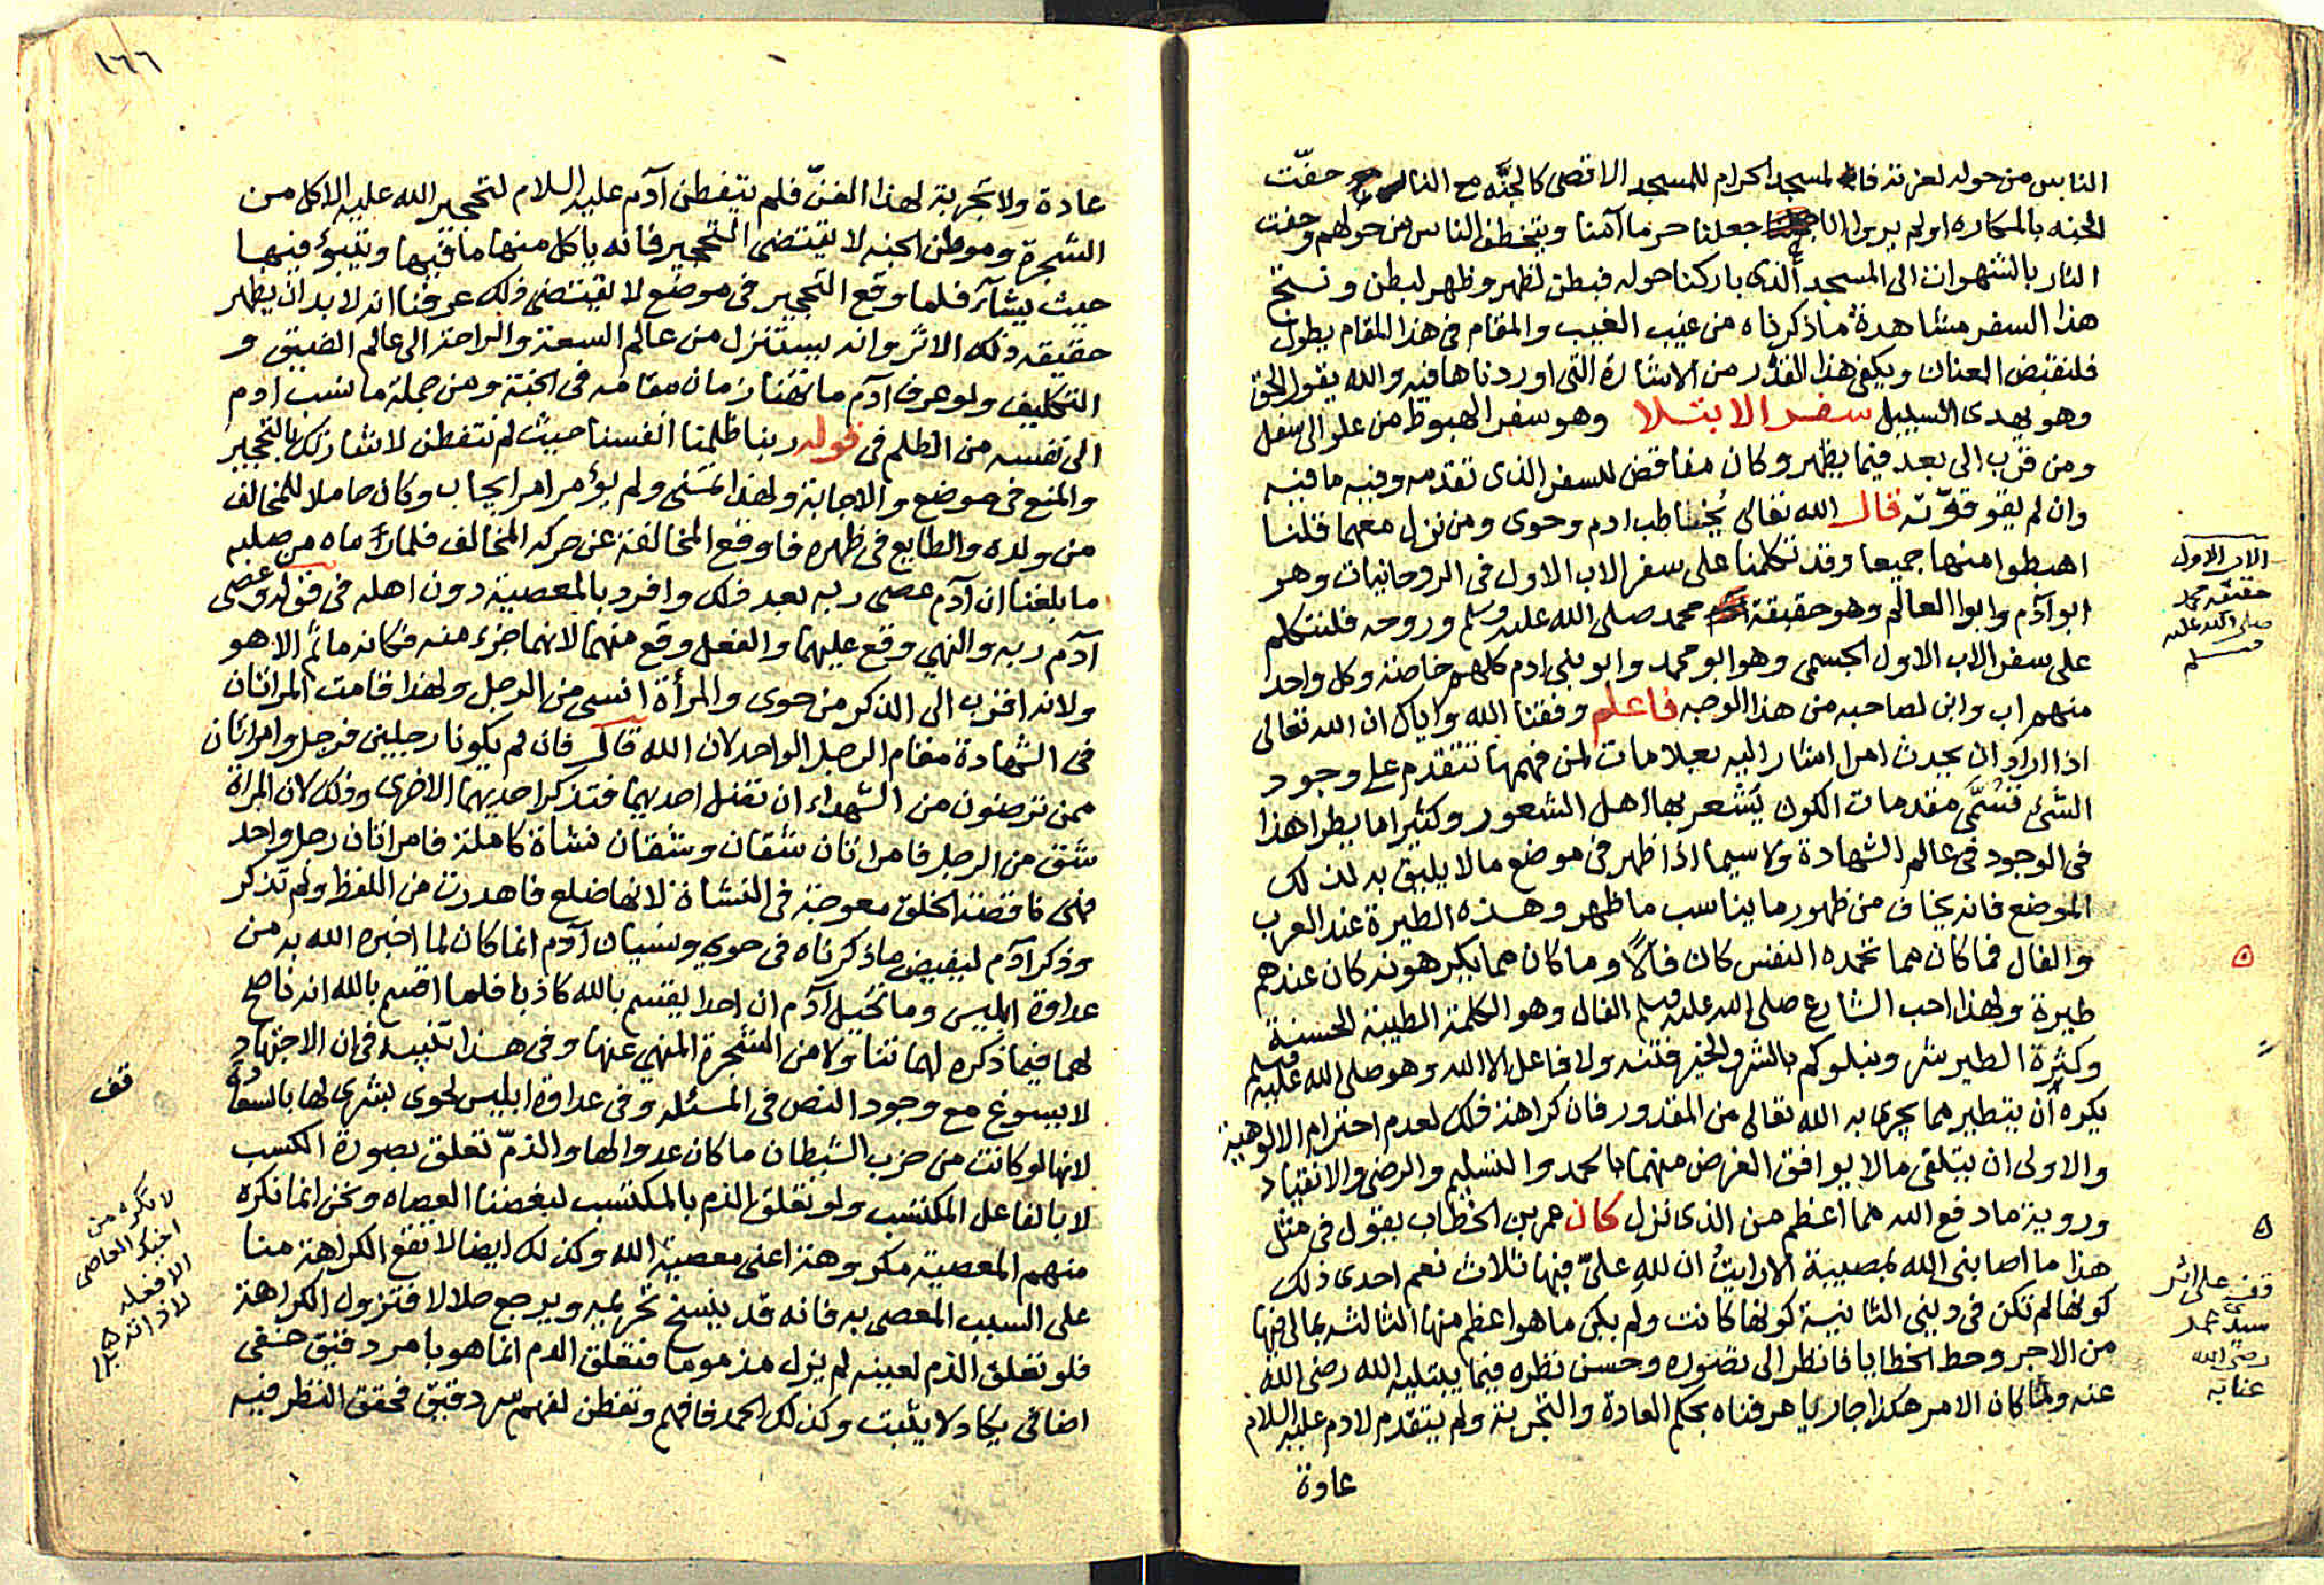 الناس من حوله لعزته فالمسجد الحرام للمسجد الاقصى كالجنة مع النار حفّت
الجنه بالمكاره اولم يروا انا جعلنا حرما آمنا ويتخطف الناس من حولهم وحفت
النار بالشهوات الى المسجد الذى باركنا حوله فبطن لظهر وظهر لبطن ونتج
هذا السفر مشاهدة ماذكرناه من غيب الغيب والمقام فى هذا المقام يطول
فلنقبض العنان ويكفى هذا القدر من الاشارة التى اوردناها فيه والله يقول الحق
وهو يهدى السبيل سفر الابتلا وهو سفر الهبوط من علو الى سفل
ومن قرب الى بعد فيما يظهر وكان مناقض للسفر الذى تقدمه وفيه ما فيه
وان لم يقو قوّته قال الله تعالى يُخاطب ادم وحوى ومن نزل معهما قلنا
اهبطوا منها جميعا وقد تكلمنا على سفر الاب الاول فى الروحانيات وهو
ابو آدم وابوا العالم وهو حقيقة محمد صلى الله عليه وسلم وروحه فلنتكلم
على سفر الاب الاول الجسمى وهو ابو محمد وابو بنى ادم كلهم خاصة وكل واحد
منهم اب وابن لصاحبه من هذا الوجه فاعلم وفقنا الله واياك ان الله تعالى
اذا اراد ان يحدث امرا اشار اليه بعلامات لمن فهمها تتقدم على وجود
الشئ تُسمّى مقدمات الكون يَشعر بها اهل الشعور وكثيرا ما يطرا هذا
فى الوجود فى عالم الشهادة ولا سيما اذا ظهر فى موضع ما لا يليق به لذلك
الموضع فانه يخاف من ظهور ما يناسب ما ظهر وهذه الطيرة عند العرب
والفال فما كان مما تحمده النفس كان فالاً وما كان مما يكرهونه كان عندهم
طيرة ولهذا احب الشارع صلى الله عليه وسلم الفال وهو الكلمة الطيبة الحسنة
وكثرة الطير شر ونبلوكم بالشر والخير فتنه ولا فاعل الا الله وهو صلى الله عليه وسلم
يكره أن يتطير مما يجرى به الله تعالى من المقدور فان كراهة ذلك لعدم احترام الالوهية
والاولى ان يتلقى ما لا يوافق الغرض منهما بالحمد والتسليم والرضى والانقياد
وروية ما دفع الله مما اعظم من الذى نزل كان عمر بن الخطاب يقول فى مثل
هذا ما اصابنى الله بمصيبة الا رايتُ ان لله علىّ فيها ثلاث نعم احدى ذلك
كونها لم تكن فى دينى الثانية كونها كانت ولم يكن ما هو اعظم منها الثالثه بما لى فيها
من الاجر وحط الخطايا فانظر الى تصوره وحسن نظره فيما يبتليه الله رضى الله
عنه ولما كان الامر هكذا جاريا عرفناه بحكم العادة والتجربة ولم يتقدم لادم عليه السلام
عادة
الاب الاول
حقيقه محمد
صلى الله عليه
وسلم
قف على اثر
سيدى عمر
رضى الله
عنا به
١٦٦
عادة ولا تجربة لهذا الفنّ فلم يتفطن آدم عليه السلام لتحجير الله عليه الاكل من
الشجرة وموطن الجنه لا يقتضى التحجير فانه ياكل منها ما فيها ويتبوؤ فيها
حيث يشآء فلما وقع التحجير فى موضع لا يقتضى ذلك عرفنا انه لا بد ان يظهر
حقيقه ذلك الاثر وانه يستنزل من عالم السعة والراحة الى عالم الضيق و
التكليف ولو عرف آدم ما تهنا زمان مقامه فى الجنة ومن جملة ما نسب ادم
الى نفسه من الظلم فى قوله ربنا ظلمنا انفسنا حيث لم نتفطن لاشارتك بالتحجير
والمنع فى موضع والاجابة ولهذا نسى ولم يؤمر امر ايجاب وكان حاملا للمخالف
من ولده والطايع فى ظهره فاوقع المخالفة عن حركه المخالف فلما رماه من صلبه
ما بلغنا ان آدم عصى ربه بعد ذلك وافرد بالمعصية دون اهله فى قوله وعصى
آدم ربه والنهى وقع عليهما والفعل وقع منهما لانهما جزء منه فكانه ما ثم الا هو
ولانه اقرب الى الذكر من حوى والمرأة انسى من الرجل ولهذا قامت المراتان
فى الشهادة مقام الرجل الواحد لان الله قال فان لم يكونا رجلين فرجل وامراتان
ممن ترضون من الشهداء ان تضل احديهما فتذكر احديهما الاخرى وذلك لان المراة
شق من الرجل فامراتان شقان وشقان نشاة كاملة فامراتان رجل واحد
فهى ناقصة الخلق معوجة فى النشاة لانها ضلع فاهدرت من اللفظ ولم تذكر
وذكر آدم لنقيض ماذكرناه فى حوى ونسيان آدم انما كان لما اخبره الله به من
عداوة ابليس وما تخيل آدم ان احدا يقسم بالله كاذبا فلما اقسم بالله انه ناصح
لهما فيما ذكره لهما تناولا من الشجرة المنهى عنها وفى هذا تنبيه فى ان الاجتهاد
لا يسوغ مع وجود النص فى المسئله وفى عداوة ابليس لحوى بشرى لها بالسعادة
لانها لو كانت من حزب الشيطان ما كان عدوا لها والذمّ تعلق بصورة الكسب
لا بالفاعل المكتسب ولو تعلق الذم بالمكتسب لبغضنا العصاه ونحن انما نكره
منهم المعصية مكروهة اعنى معصية الله وكذلك ايضا لا تقع الكراهة منا
على السبب المعصى به فانه قد ينسخ تحريمه ويرجع حلالا فتزول الكراهة
فلو تعلق الذم لعينه لم يزل مذموما فتعلق الذم انما هو بامر دقيق خفى
اضافى يكاد لا يثبت وكذلك الحمد فافهم وتفطن لفهم سر دقيق فحقق النظر فيه
قف
لا تكره من
اخيك العاصى
الا فعله
لا ذاته